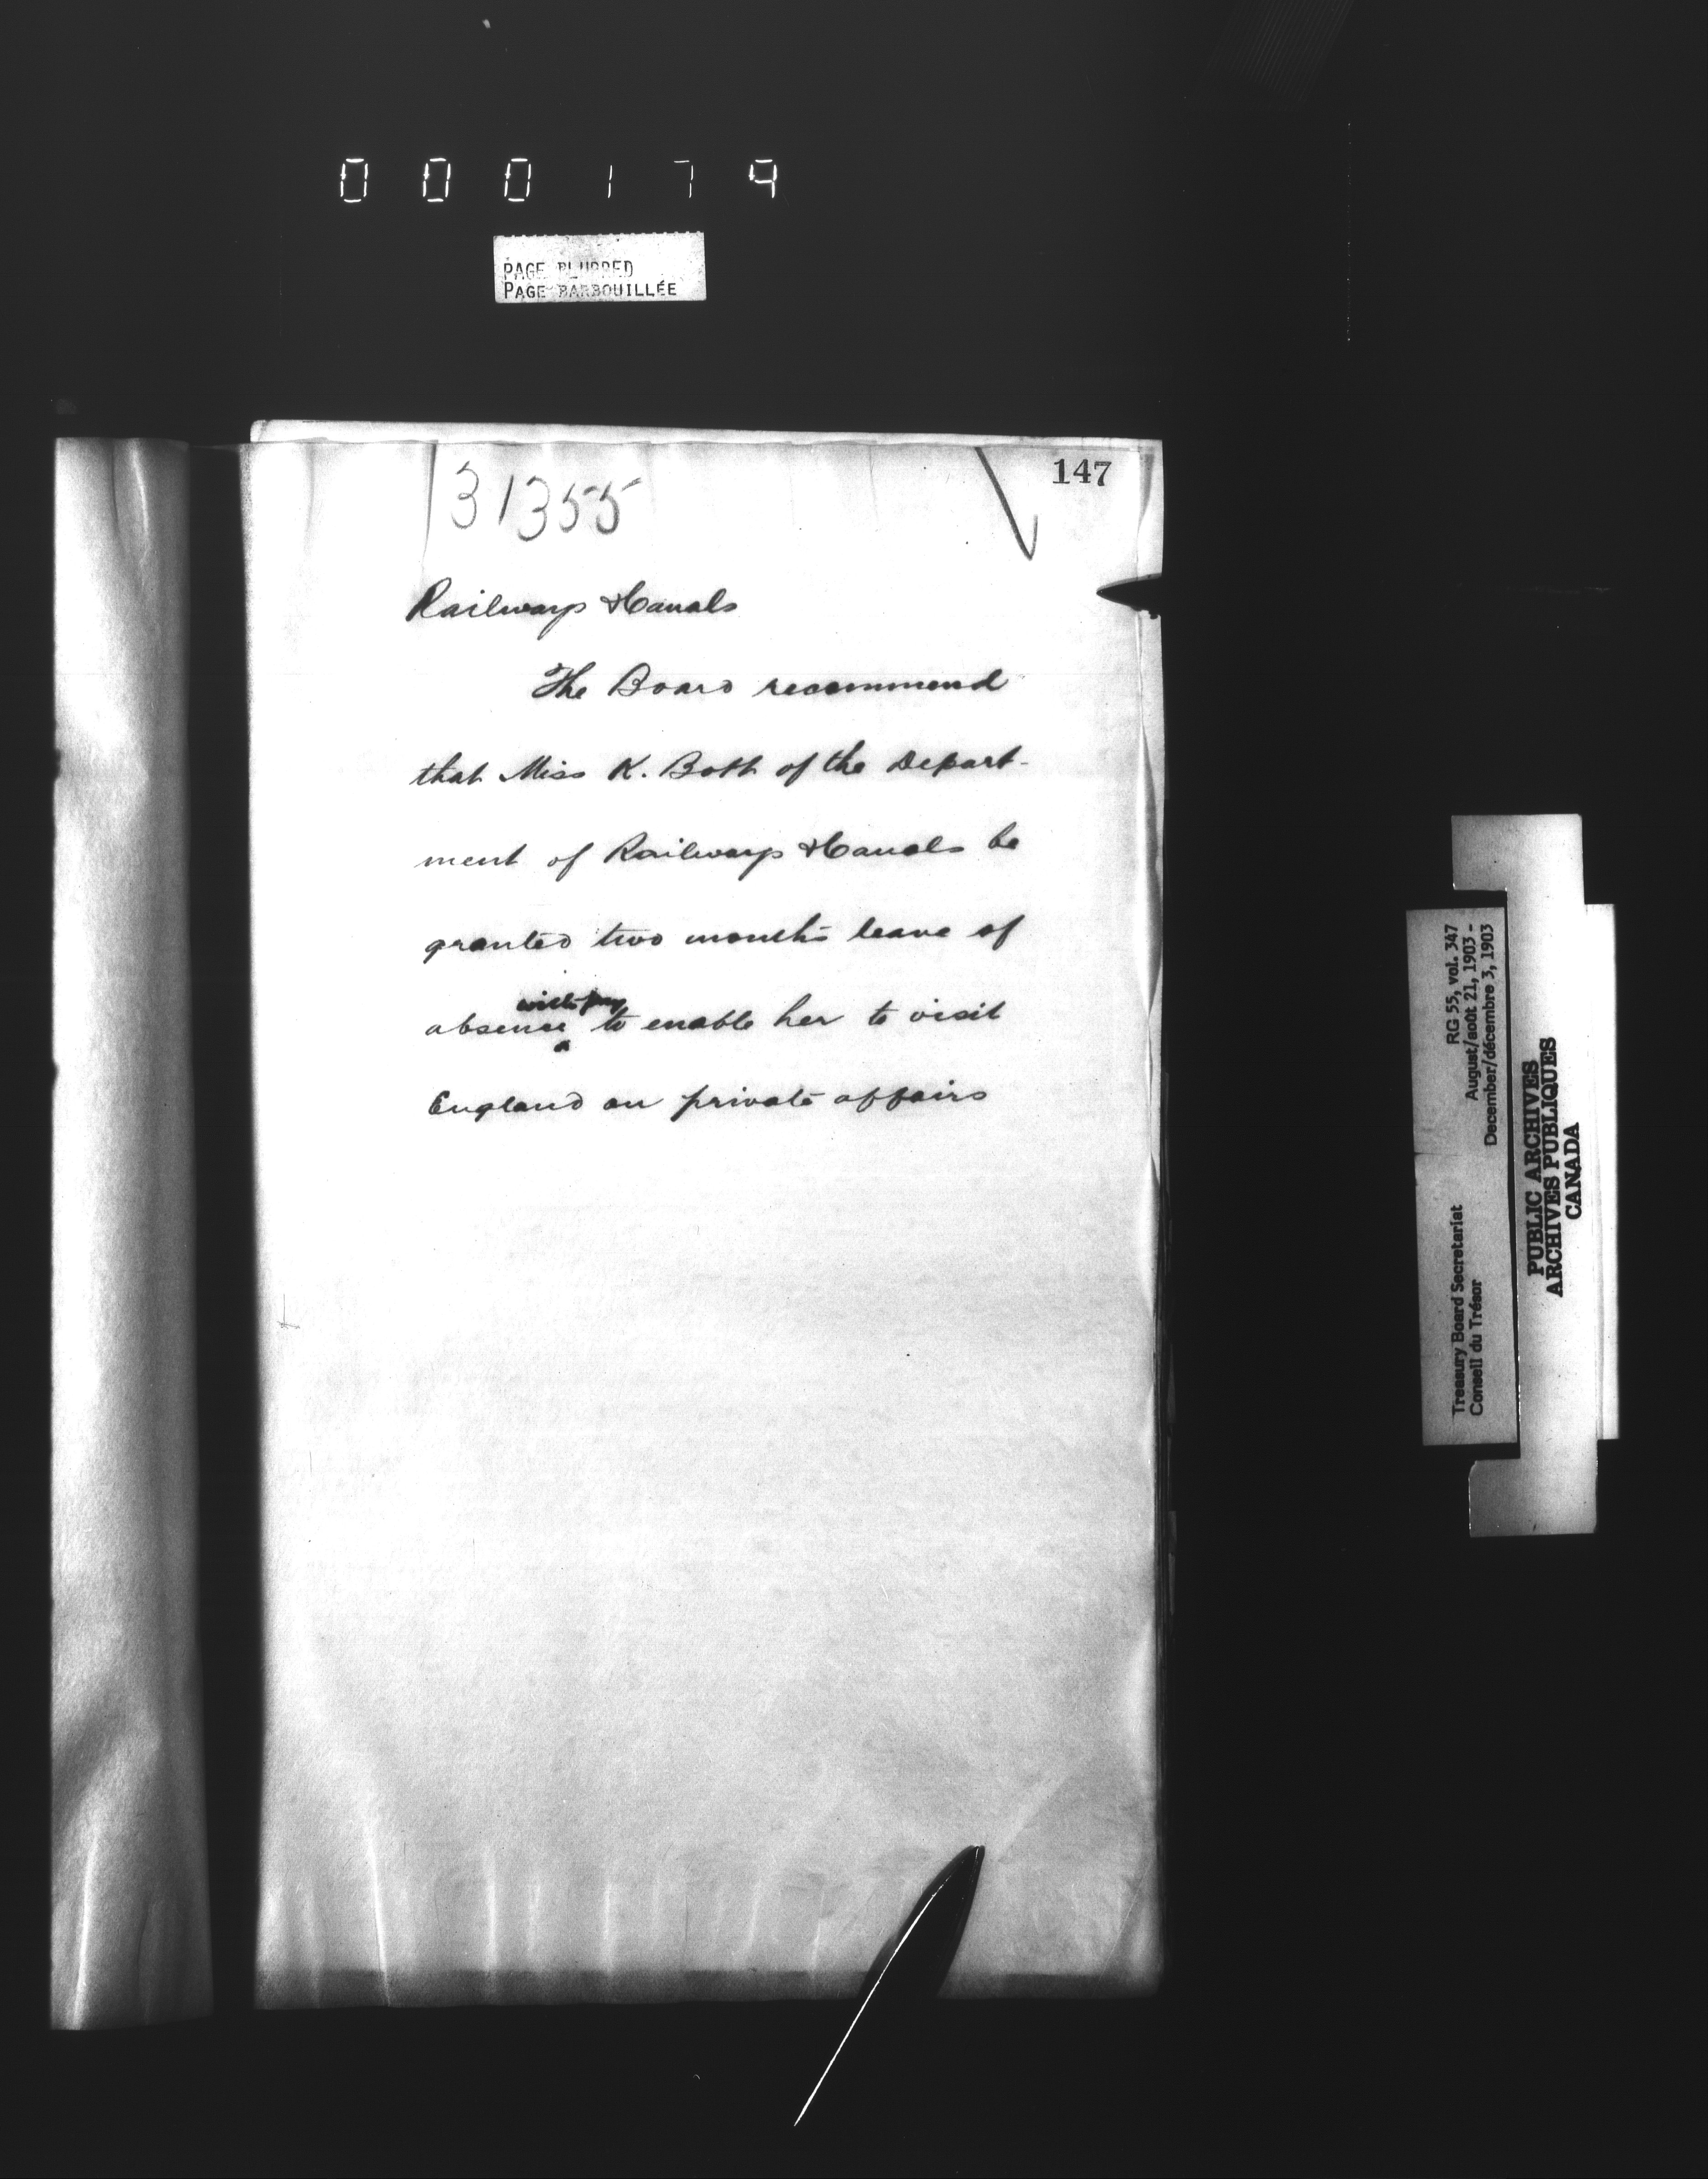 000179
PAGE BLURRED
PAGE BARBOUILLÉE
147
131355
Railways & Canals
The Board recommend
that Miss K. Both of the Depart-
ment of Railways & Canals be
granted two months leave of
with pay
absence ^ to enable her to visit
England on private affairs
Treasury Board Secretariat RG 55, vol. 347
Conseil du Trésor August/août 21, 1903 -
December/décembre 3, 1903
PUBLIC ARCHIVES
ARCHIVES PUBLIQUES
CANADA